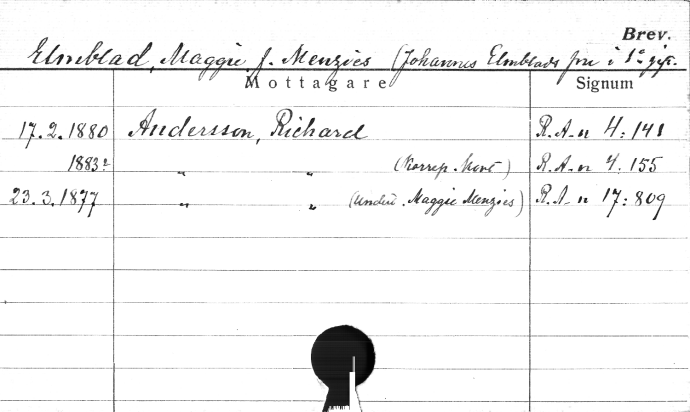 Brev.
Elmblad, Maggie f. Menzies (Johannes Elmblads fru i 1a gift.
Mottagare Signum
17.2.1880 Andersson, Richard R.A-n 4:141
1883? " " (Korresp. kort) R.A-n 4:155
23.3.1877 " " (Undert. Maggie Menzies) R.A-n 17:809